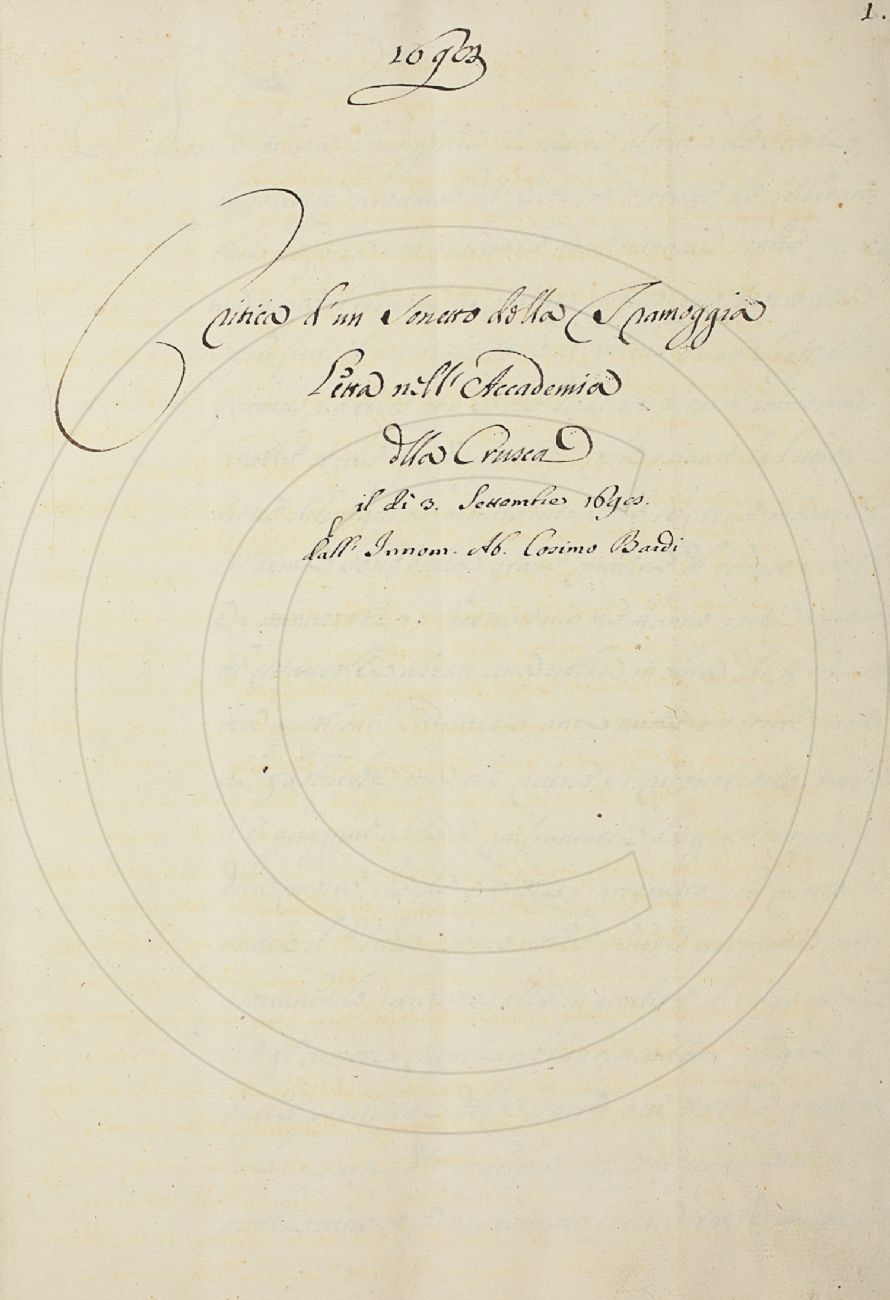 1.
Critica d'un Sonetto della Tramoggia
Letta nell'Accademia
dlla Crusca
il dì 3. Settembre
dall' Innom. Ab. Cosimo Bardi